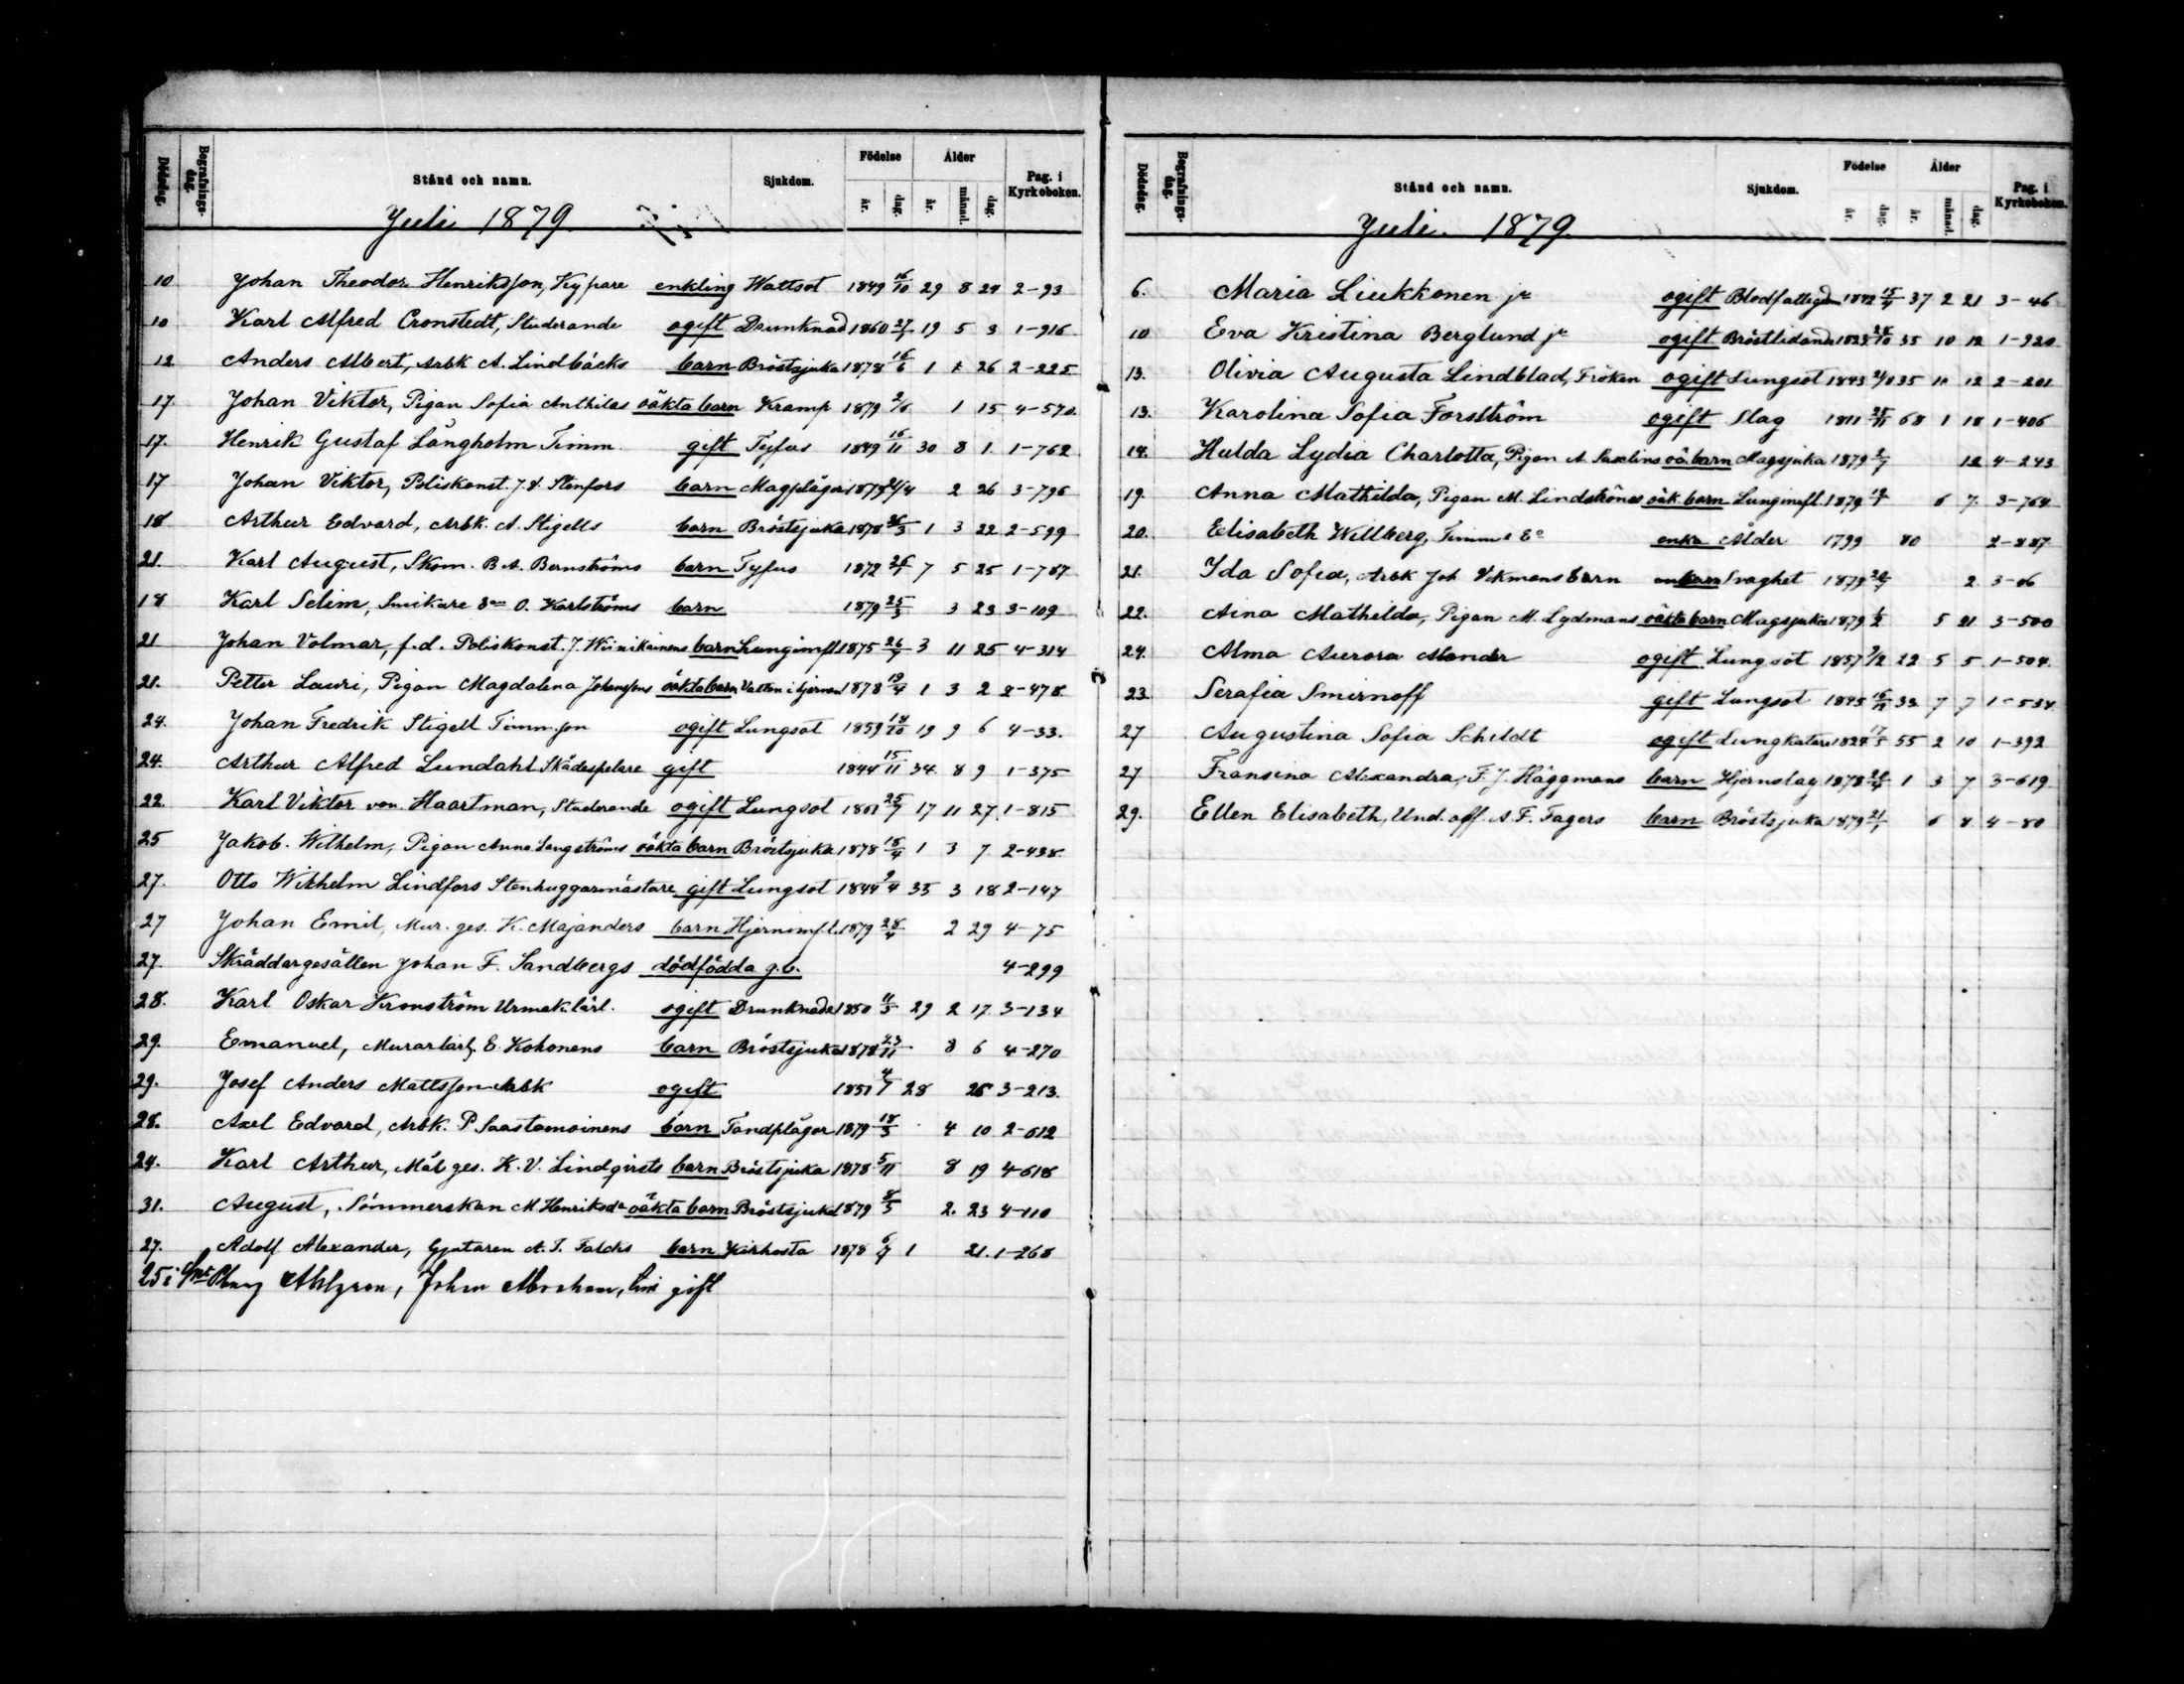 Dödsdag. Begrafningsdag. Stånd och namn. Sjukdom. Födelse år. dag. Ålder år. månad. dag. Pag. i Kyrkoboken.
Juli 1879.
10 Johan Theodor Henriksson, Kypare enkling Wattsot 1849 16/10 29 8 24 2-93
10 Karl Alfred Cronstedt, Studerande ogift Drunknad 1860 27/1 19 5 3 1-916
12 Anders Albert, Arbk A. Lindbäcks barn Bröstsjuka 1878 16/6 1 1 26 2-225
17 Johan Viktor, Pigan Sofia Anthilas oäkta barn Kramp 1879 2/6 1 15 4-570
17. Henrik Gustaf Långholm Timm. gift Tyfus 1849 16/11 30 8 1 1-762
17 Johan Viktor, Poliskonst. J. V. Stenfors barn Magplågor 1879 21/4 2 26 3-796
18 Arthur Edvard, Arbk. A. Stigells barn Bröstsjuka 1878 26/3 1 3 22 2-599
21. Karl August, Skom. B. A. Bernströms barn Tyfus 1872 26/1 7 5 25 1-787
18 Karl Selim, O. Karlströms barn 1879 25/3 3 23 3-109
21 Johan Volmar, f.d. Poliskonst. J. Wiinikainens barn Lunginfl. 1875 26/7 3 11 25 4-314
21. Petter Lauri, Pigan Magdalena Johanssons oäkta barn Vatten i hjernan 1878 19/4 1 3 2 2-478
24. Johan Fredrik Stigell Timm.son ogift Lungsot 1859 18/10 19 9 6 4-33.
24. Arthur Alfred Lundahl Skådespelare gift 1844 15/11 34 8 9 1-375
22 Karl Viktor von Haartman, Studerande ogift Lungsot 1861 25/7 17 11 27 1-815
25 Jakob Wilhelm, Pigan Anna Langströms oäkta barn Bröstsjuka 1878 18/4 1 3 7 2-438
27. Otto Wilhelm Lindfors Stenhuggarmästare gift Lungsot 1844 9/4 35 3 18 2-147
27 Johan Emil, Mur. ges. K. Majanders barn Hjerninfl. 1879 28/4 2 29 4-75
27. Skräddargesällen Johan F. Sandbergs dödfödda g.b. 4-299
28. Karl Oskar Kronström Urmak.lärl. ogift Drunknade 1850 11/5 29 2 17 3-134
29. Emanuel, Murarlärl. E. Kokonens barn Bröstsjuka 1878 23/11 8 6 4-270
29. Josef Anders Mattsson Arbk ogift 1851 4/7 28 25 3-213.
28. Axel Edvard, Arbk. P Saastamoinens barn Tandplågor 1879 18/3 4 10 2-612
24. Karl Arthur, Mål. ges. K. V. Lindqvists barn Bröstsjuka 1878 5/11 8 19 4-618
31. August, Sömmerskan M. Henriksdr oäkta barn Bröstsjuka 1879 8/5 2 23 4-110
27. Adolf Alexander, Gjutaren A. T. Falcks barn Kikhosta 1878 6/7 1 21. 1-268
25 i Ahlgren, Johan Abraham, gift
Dödsdag. Begrafningsdag. Stånd och namn. Sjukdom. Födelse år. dag. Ålder år. månad. dag. Pag. i Kyrkoboken.
Juli. 1879.
6. Maria Liukkonen ja ogift Blodfattigdom 1842 15/4 37 2 21 3-46
10 Eva Kristina Berglund ja ogift Bröstlidande 28/10 35 10 12 1-920
13. Olivia Augusta Lindblad, Fröken ogift Lungsot 1843 35 11 12 2-201
13. Karolina Sofia Forsström ogift Slag 1811 25/5 68 1 18 1-406
14. Hulda Lydia Charlotta, Pigan A. Saxelins oä. barn Magsjuka 1879 2/7 12 4-243
19. Anna Mathilda, Pigan M. Lindströms oäk. barn Lunginfl. 1879 12/1 6 7. 3-764
20. Elisabeth Willberg, Timm. Ea enka Ålder 1799 80 2-887
21. Ida Sofia, Arbk Joh Vikmans barn Svaghet 1879 2 3-06
22. Aina Mathilda, Pigan M. Lydmans oäkta barn Magsjuka 1879 1/2 5 21 3-500
24. Alma Aurora Monder ogift Lungsot 1857 22 5 5 1-504
23. Serafia Smirnoff gift Lungsot 1845 16/12 33 7 7 1-534
27 Augustina Sofia Schildt ogift Lungkatarr 1824 17/5 55 2 10 1-392
27 Fransina Alexandra, F. J. Häggmans barn Hjernslag 1878 20/4 1 3 7 3-619
29. Ellen Elisabeth, Und. off. A. F. Fagers barn Bröstsjuka 1879 21/1 6 8 4-80